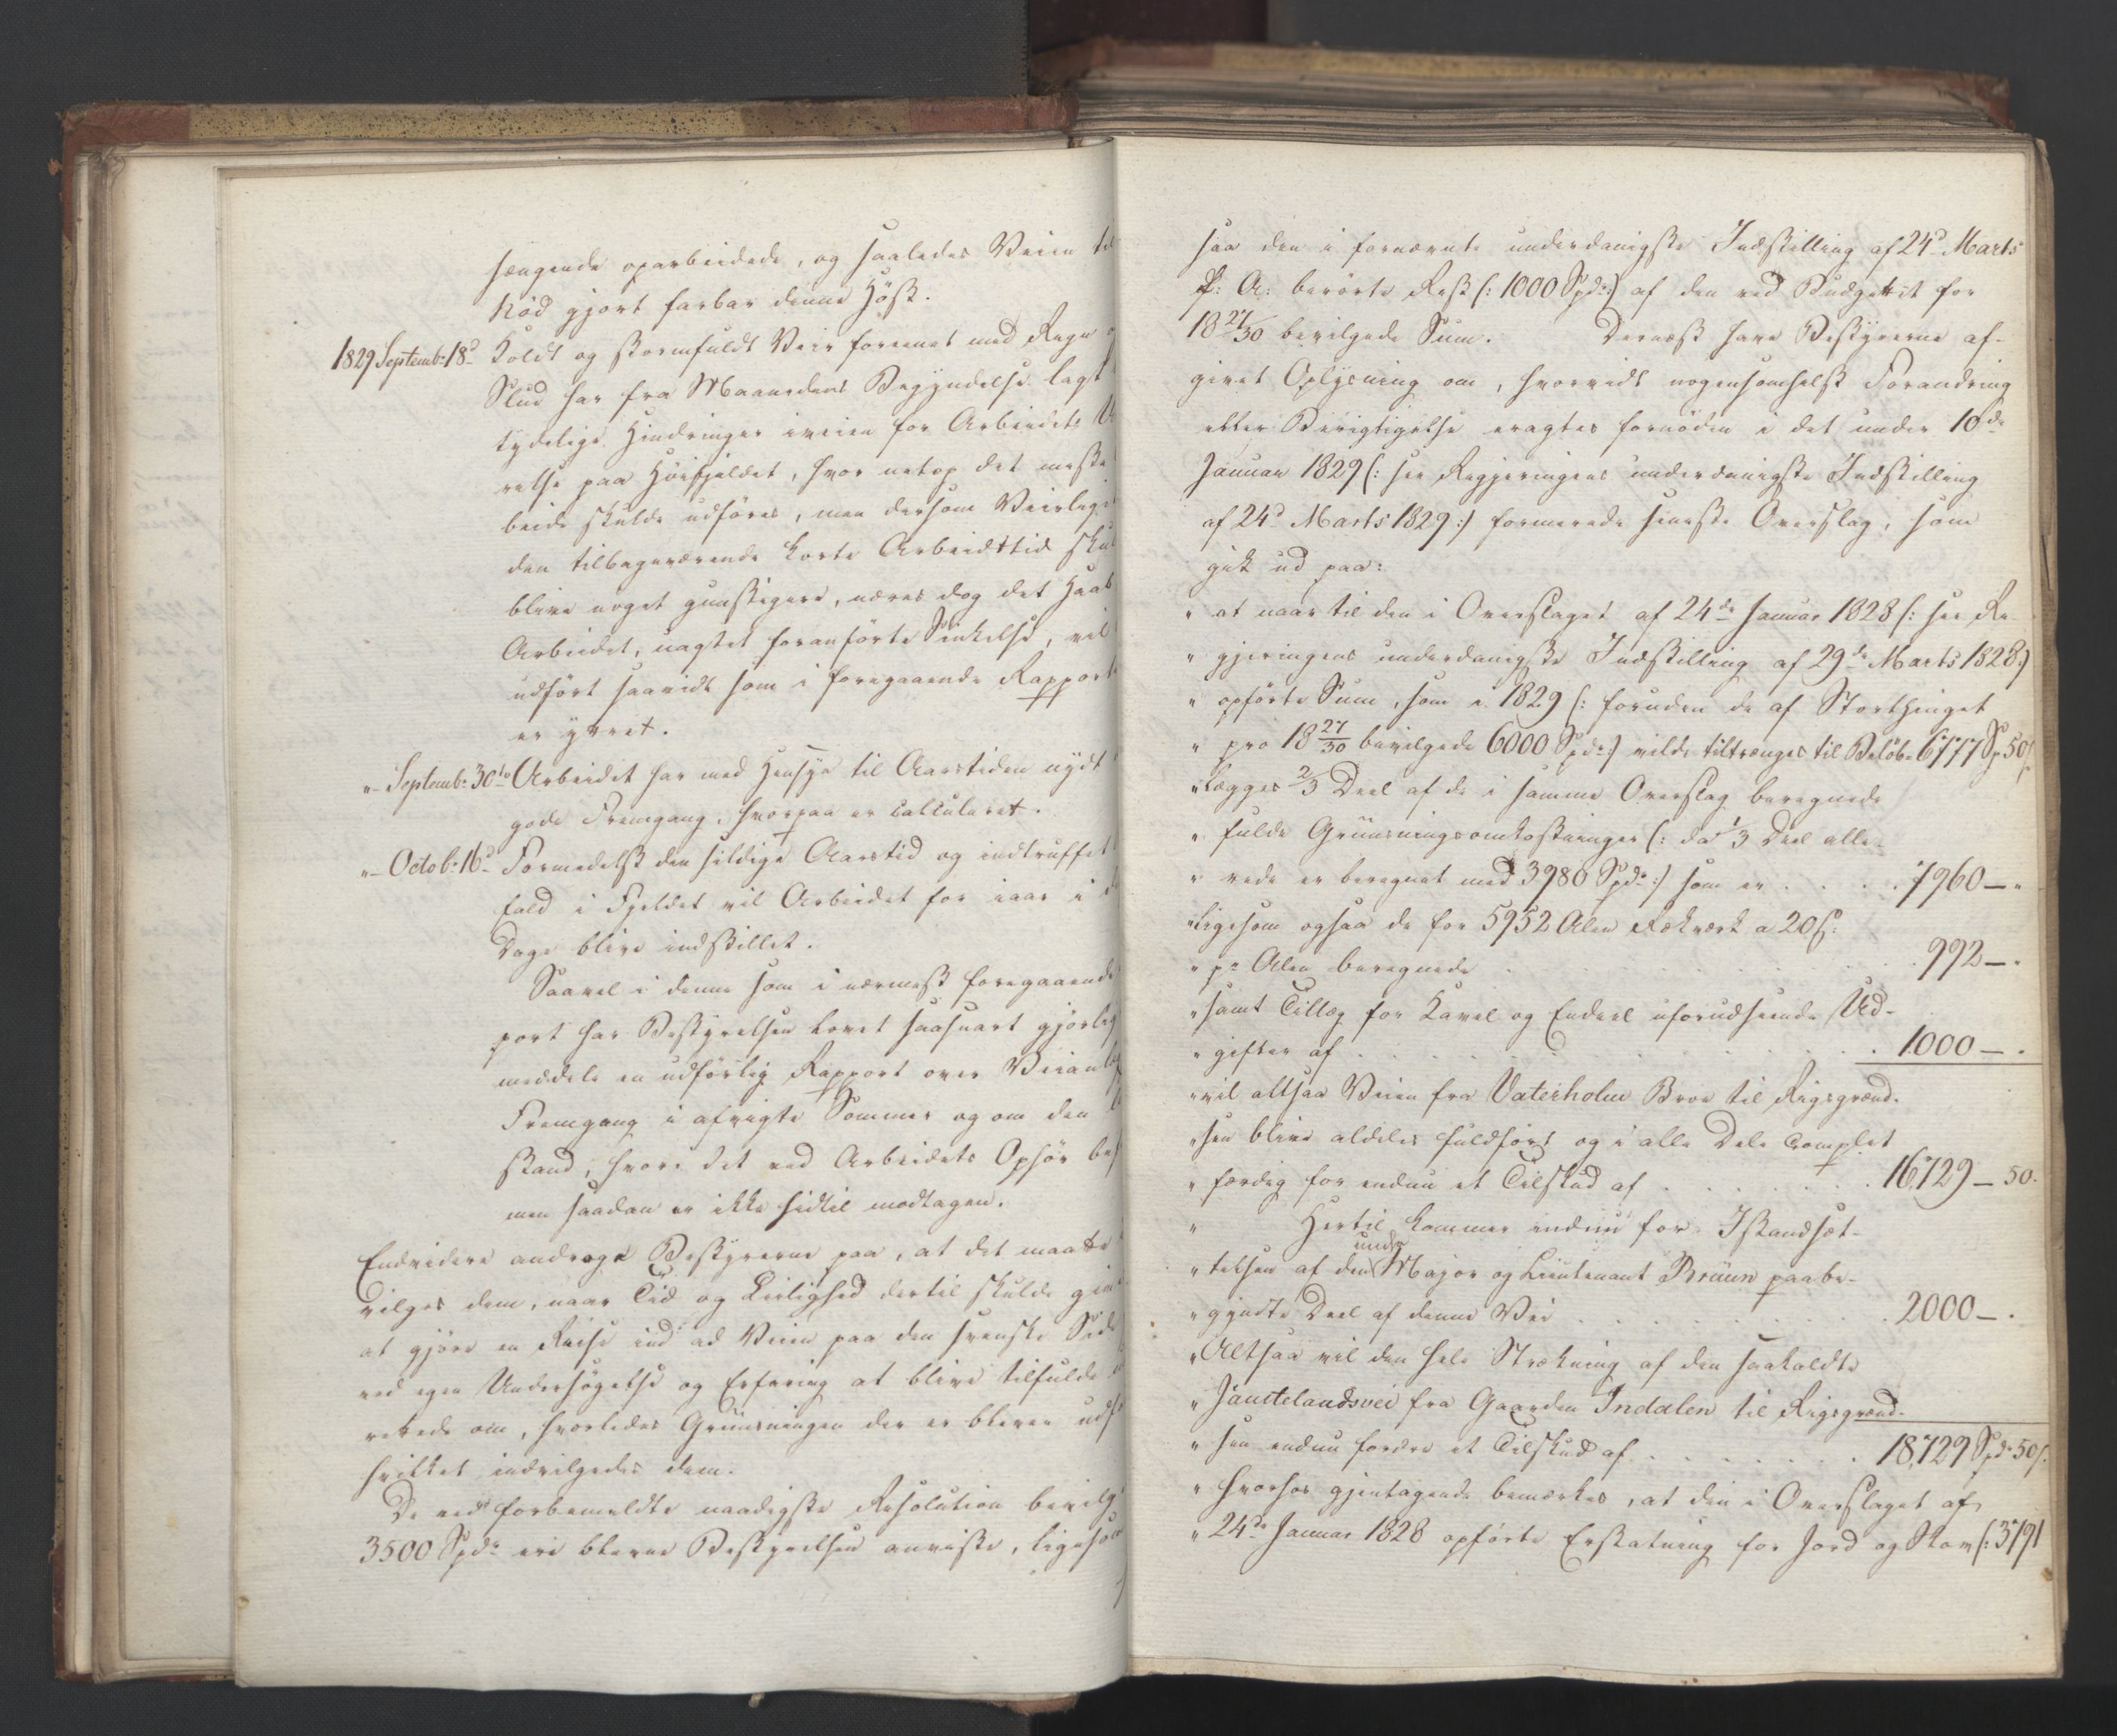 hængende oparbeidede, og saaledes Veien til
Nød gjort farbar denne Høst.
1829 Septemb: 18d Koldt og stormfuldt Veir foreenet med Regn o
Slud har fra Maanedens Begyndelse lagt
tydelige Hindringer iveien for Arbeidets U
relse paa Høifjeldet, hvor netop det meste
beide skulde udføres, men dersom Veirliget
den tilbageværende korte Arbeidstid skul
blive noget gunstigere, næres dog det Haab
Arbeidet, uagtet foranførte Sinkelse, vil
udført saavidt som i foregaaende Rapport
er yttret.
"- Septemb: 30te Arbeidet har med Hensyn til Aarstiden nydt
gode Fremgang, hvorpaa er calculeret.
"- Octob: 16d Formedelst den sildige Aarstid og indtruffet
fald i Fjeldet vil Arbeidet for iaar i d
Dage blive indstillet.
Saavel i denne som i nærmest foregaaende
port har Bestyrelsen lovet saasnart gjørlig
meddele en udførlig Rapport over Veianlæg
Fremgang i afvigte Sommer og om den
stand, hvori det ved Arbeidets Ophør bef
men saadan er ikke hidtil modtagen.
Endvidere androge Bestyrerne paa, at det maatte
vilges dem, naar Tid og Leilighed dertil skulde give
at gjøre en Reise ind ad Veien paa den svenske Side
ved egen Undersøgelse og Erfaring at blive tilfulde
rettede om, hvorledes Gruusningen der er bleven udf
hvilket indvilgedes dem.
De ved forbemeldte naadigste Resolution bevilg
3500 Spdr ere blevne Bestyrelsen anviste, ligesom
saa den i fornævnte underdanigste Indstilling af 24d Marts
p: A: berørte Rest (: 1000 Spdr :) af den ved Budgettet for
18 27/30 bevilgede Sum. Dernæst have Bestyrerne af-
givet Oplysning om, hvorvidt nogensomhelst Forandring
eller Berigtigelse eragtes fornøden i det under 10de
Januar 1829 (: see Regjeringens underdanigste Indstilling
af 24d Marts 1829 :) formerede seneste Overslag, som
gik ud paa:
" at naar til den i Overslaget af 24de Januar 1828 (: see Re-
" gjeringens underdanigste Indstilling af 29de Marts 1828 :)
" opførte Sum, som i 1829 (: foruden de af Storthinget
" pro 18 27/30 bevilgede 6000 Spdr :) vilde tiltrænges til Beløb 6777 Sp 50 s
" lægges 2/3 Deel af de i samme Overslag beregnede
" fulde Gruusningsomkostninger (: da 1/3 Deel alle-
" rede er beregnet med 3980 Spdr :) som er . . . . 7960 - "
" ligesom ogsaa de for 5952 Alen Rækværk a 20 s:
" pr Alen beregnede . . . . . . . 992 - .
" samt Tillæg for Kavel og Endeel uforudseende Ud-
" gifter af . . . . . . . . . . 1000 - .
" vil altsaa Veien fra Vaterholm Broe til Rigsgrænd-
" sen blive aldeles fuldført og i alle Dele complet
" færdig for endnu et Tilskud af . . . . . . 16,729 - 50.
" Hertil kommer endnu for Istandsæt-
" telsen af den under Major og Lieutenant Bruun paabe-
" gyndte Deel af denne Vei . . . . . . . . 2000 - .
" Altsaa vil den hele Strækning af den saakaldte
" Jamtelandsvei fra Gaarden Indalen til Rigsgrænd-
" sen endnu fordre et Tilskud af . . . . . . 18,729 Spd 50 s.
" hvorhos gjentagende bemærkes, at den i Overslaget af
" 24de Januar 1828 opførte Erstatning for Jord og Skov (: 3791